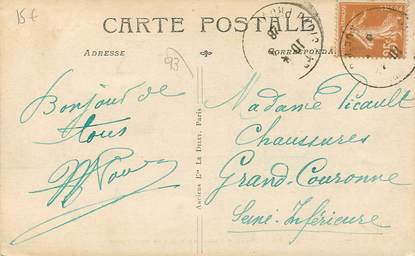 15 f
CARTE POSTALE
ADRESSE
CORRESPONDA
93
Bonjour de
tous
Madame Picault
Chaussures
Grand-Couronne
Seine-Inférieure
Anciens Ets Le Deley, Paris